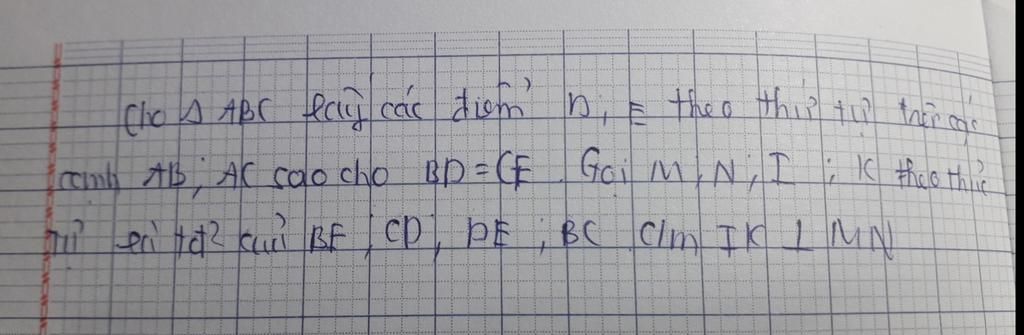 Cho Δ ABC lấy các điểm D, E theo thứ tự trên các
cạnh AB; AC sao cho BD = CE. Gọi M, N; I; K theo thứ
tự là tđ² của BE, CD, DE, BC C/m IK ⊥ MN